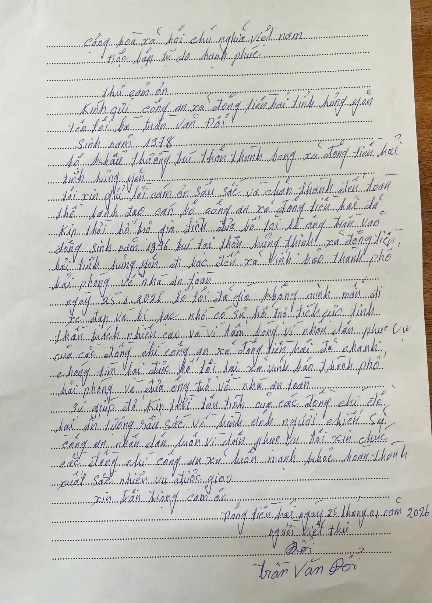 cộng hoà xã hội chủ nghĩa việt nam
độc lập tự do hạnh phúc
thư cảm ơn
Kính gửi công an xã đông tiền hải tỉnh hưng yên
Tên tôi là trần văn Đổi
Sinh năm 1978
hộ khẩu thường trú thôn thanh xã đông tiền hải
tỉnh hưng yên
tôi xin gửi lời cảm ơn sâu sắc và chân thành đến toàn
thể lãnh đạo cán bộ công an xã đông tiền hải đã
kịp thời hỗ trợ gia đình đưa bố tôi là ông trần văn
sinh năm trú tại thôn hưng thịnh xã đông tiền
hải tỉnh hưng yên đi lạc đến xã vĩnh bảo thành phố
hải phòng về nhà an toàn
ngày 25.1.2026 do tôi đã già không minh mẫn đi
xe đạp và bị lạc nhờ có sự hỗ trợ tích cực tinh
thần trách nhiệm cao và vì nhân dân phục vụ
của các đồng chí công an xã đông tiền hải đã nhanh
chóng tìm lại được bố tôi tại xã vĩnh bảo thành phố
hải phòng và đưa ông về nhà an toàn
sự giúp đỡ kịp thời của các đồng chí để
lại ấn tượng sâu sắc về hình ảnh người chiến sỹ
công an nhân dân luôn vì dân phục vụ tôi xin chúc
các đồng chí công an xã luôn mạnh khoẻ hoàn thành
xuất sắc nhiệm vụ được giao
xin trân trọng cảm ơn
Đông tiền hải ngày 25 tháng 01 năm 2026
người viết thư
Đổi
trần văn Đổi